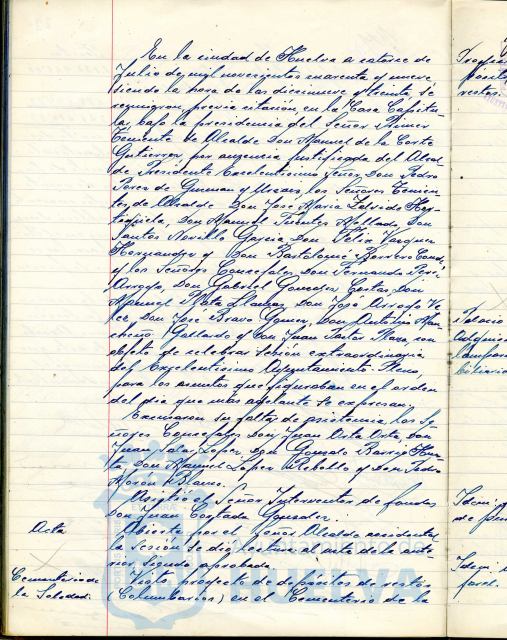 En la ciudad de Huelva a catorce de
Julio de mil novecientos cuarenta y nueve
siendo la hora de las diecinueve y treinta, se
reunieron previa citación en la Casa Capitu-
lar, bajo la presidencia del Señor Primer
Teniente de Alcalde Don Manuel de la Corte
Gutierrez por ausencia justificada del Alcal-
de Presidente Excelentisimo Señor Don Pedro
Perez de Guzman y Urzaiz, los Señores Tenien-
tes de Alcalde Don José Maria
Don Manuel Fuentes Don
Santos Novillo Garcia Don Felix Vazquez
Hernandez y Don Bartolomé Borrero
y los Señores Concejales Don Fernando Perez
Arroyo, Don Gabriel Gonzalez Don
Manuel Mata Don José Arroyo
Don José Bravo Gomez, Don Antonio Man-
cheño Gallardo y Don Juan Pastor con
objeto de celebrar Sesión extraordinaria
del Excelentisimo Ayuntamiento Pleno,
para los asuntos que figuraban en el orden
del dia que mas adelante se expresan.
Excusaron su falta de asistencia los Se-
ñores Concejales Don Juan Don
Juan Lopez, Don Gonzalo
Don Manuel Lopez Rebollo y Don Pedro
Morón Blanco.
Asistió el Señor Interventor de fondos
Don Juan Gonzalez.
Acta
Abierta por el Señor Alcalde accidental
la Sesión se dió lectura al acta de la ante-
rior siendo aprobada.
Cementerio de
la Soledad.
Visto proyecto de depósitos de restos
(Columbarios) en el Cementerio de la
HUELVA